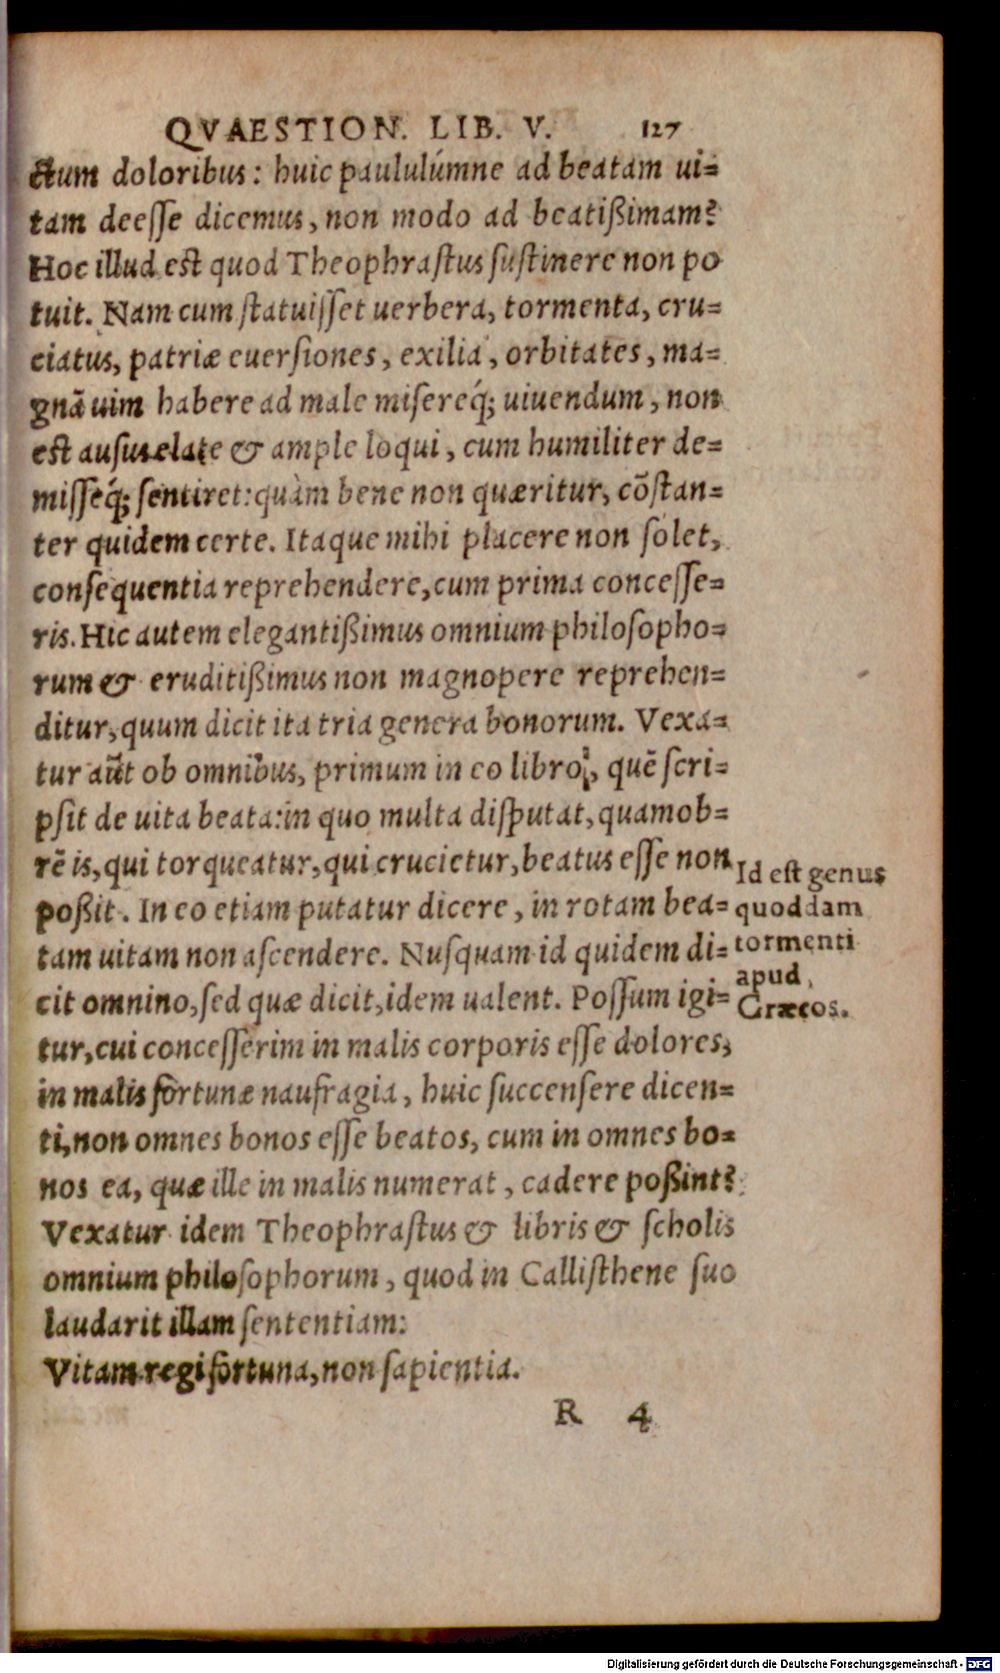 QVAESTION. LIB. V. 127
ctum doloribus: huic paululúmne ad beatam ui=
tam deesse dicemus, non modo ad beatißimam?
Hoc illud est quod Theophrastus sustinere non po
tuit. Nam cum statuisset uerbera, tormenta, cru=
ciatus, patriæ euersiones, exilia, orbitates, ma=
gnã uim habere ad male misereq́; uiuendum, non
est ausus elate & ample loqui, cum humiliter de=
misseq́; sentiret: quàm bene non quæritur, cõstan=
ter quidem certe. Itaque mihi placere non solet,
consequentia reprehendere, cum prima concesse=
ris. Hic autem elegantißimus omnium philosopho=
rum & eruditißimus non magnopere reprehen=
ditur, quum dicit ita tria genera bonorum. Vexa=
tur aũt ob omnibus, primum in eo libro, quẽ scri=
psit de uita beata: in quo multa disputat, quamob=
rẽ is, qui torqueatur, qui crucietur, beatus esse non
poßit. In eo etiam putatur dicere, in rotam bea=
tam uitam non ascendere. Nusquam id quidem di=
cit omnino, sed quæ dicit, idem ualent. Possum igi=
tur, cui concesserim in malis corporis esse dolores,
in malis fortunæ naufragia, huic succensere dicen=
ti, non omnes bonos esse beatos, cum in omnes bo=
nos ea, quæ ille in malis numerat, cadere poßint?
Vexatur idem Theophrastus & libris & scholis
omnium philosophorum, quod in Callisthene suo
laudarit illam sententiam:
Vitam regi fortuna, non sapientia.
R 4
Id est genus
quoddam
tormenti
apud
Græcos.
Digitalisierung gefördert durch die Deutsche Forschungsgemeinschaft - DFG